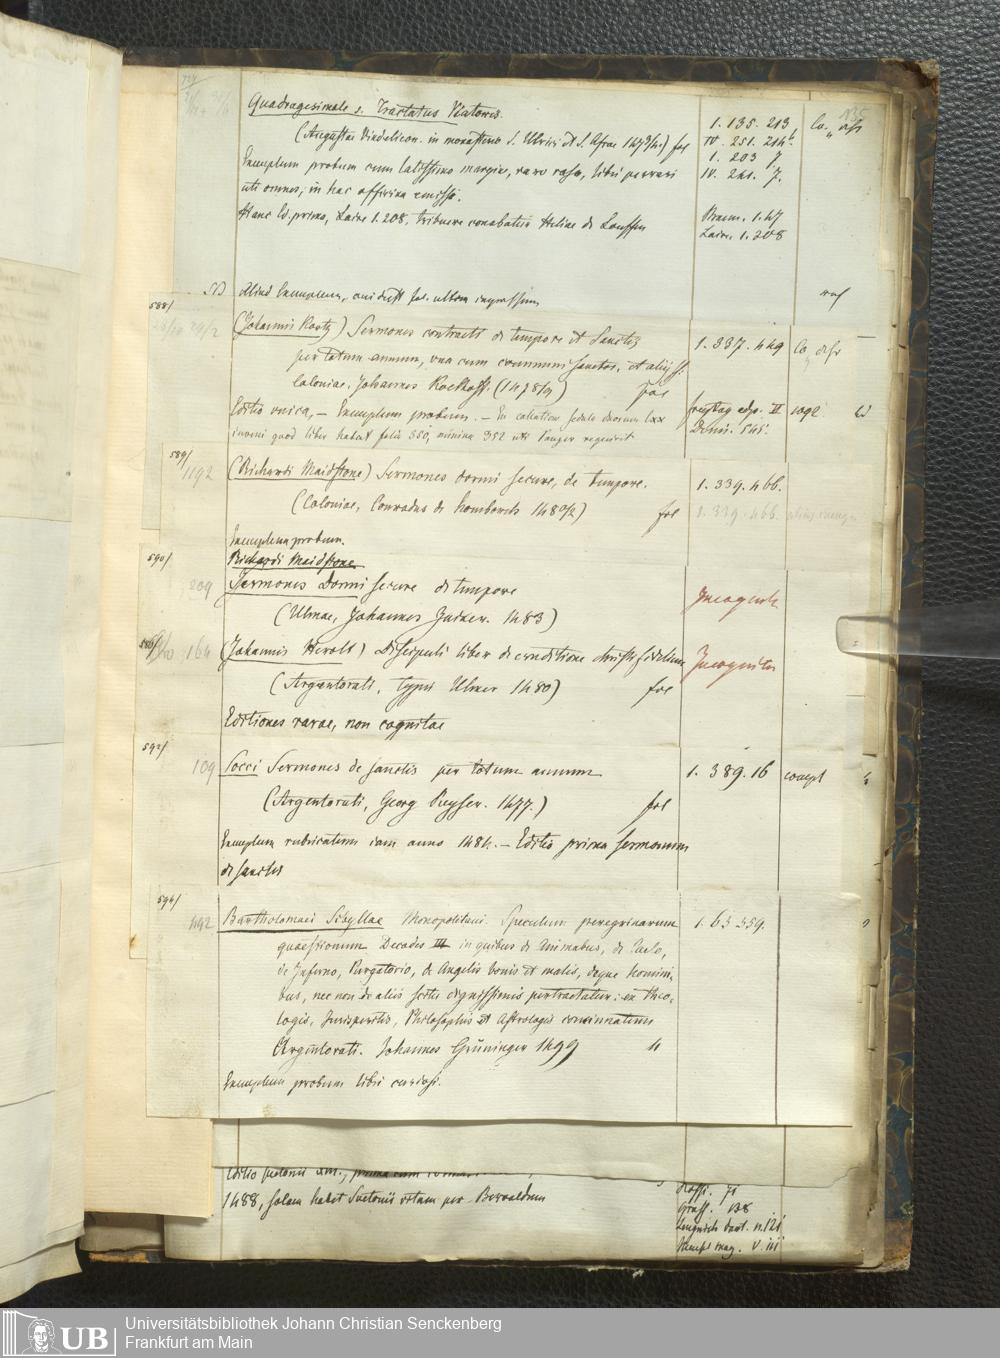 Quadragesimale s. Tractatus
(Augustae Vindelicor. in monasterio S. Ulrici et S. Afrae 1473/4.) fol
Exemplum probum cum latissimo margine, raro rasu, libri perrari
uti omnes, in hac officina emissi.
Hanc Ed. primo, Laire 1.208, tribuere conabatur Heliae de Louffen
1. 135. 213
IV. 251. 214
1. 203 7
IV. 241. 7.
Braun. 1.47
Laire. 1.208
Aliud Exemplum, cui deest fol. ultim impressum
588/
(Johannis) Sermones contracti de tempore et Sanctis
per totum annum, una cum communi sanctor. et aliis
Coloniae. Johannes Koelhoff. (1478/9) fol
Editio unica, — Exemplum probum. — In collatione
inveni quod liber habeat folia 350, minime 352 uti Panzer
1. 337. 449
Freytag adp. II
Denis. 545.
589/
1192
(Richardi Maidstone) Sermones dormi secure, de tempore.
(Coloniae, Conradus de Homborch 1480/2) fol
Exemplum probum.
1. 339. 466.
1. 339. 466.
590/
209
Richardi Maidstone
Sermones Dormi secure de tempore
(Ulmae, Johannes Zainer. 1483)
Incognita
164
(Johannis Herolt) Discipuli liber de eruditione Christifidelium
(Argentorati, typis Ulmer 1480) fol
Editiones rarae, non cognitae
Incognita
592/
109
Socci Sermones de sanctis per totum annum
(Argentorati, Georg Reyser. 1477.) fol
Exemplum rubricatum iam anno 1484. — Editio prima sermonum
de sanctis
1. 389. 16
compl
594/
1192
Bartholomaei Sibyllae Monopolitani. Speculum peregrinarum
quaestionum Decades III in quibus de Animabus, de Caelo,
de Inferno, Purgatorio, de Angelis bonis et malis, deque homini-
bus, nec non de aliis scitu dignissimis pertractatur: ex theo-
logis, Jurisperitis, Philosophis et Astrologis concinnatum
Argentorati. Johannes Grüninger 1499 4
Exemplum probum libri curiosi.
1. 63 359.
1488, solam habet Suetonii vitam per Beroaldum
Rossi. 71
Graff. 138
V. III
Universitätsbibliothek Johann Christian Senckenberg
UB Frankfurt am Main